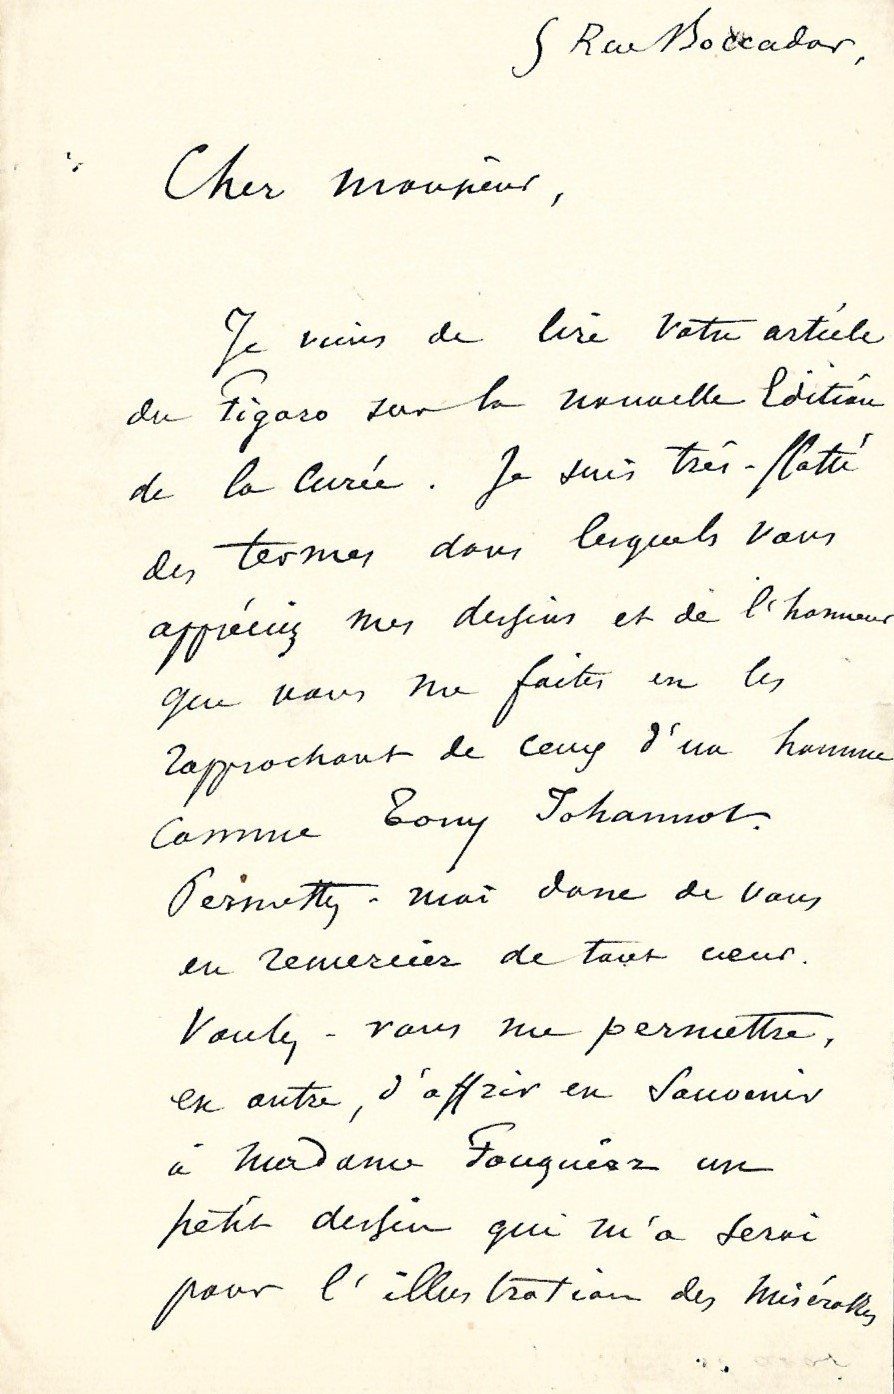 5 Rue Boccador,
Cher monsieur,
Je viens de lire votre article
du Figaro sur la nouvelle Edition
de la Curée. Je suis très-flatté
des termes dans lesquels vous
appréciez mes dessins et de l'honneur
que vous me faites en les
rapprochant de ceux d'un homme
comme Tony Johannot.
Permettez-moi donc de vous
en remercier de tout cœur.
Voulez-vous me permettre,
en outre, d'offrir en souvenir
à Madame Fouquier un
petit dessin qui m'a servi
pour l'illustration des Misérables